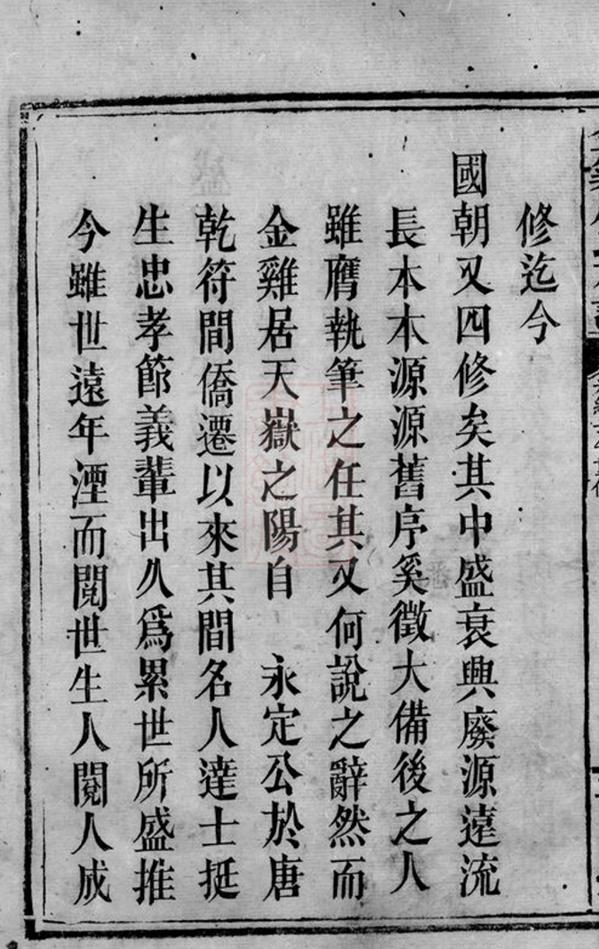 修迄今
國朝又四修矣其中盛衰興廢源遠流
長本本源源舊序奚徵大備後之人
雖膺執筆之任其又何說之辭然而
金雞居天嶽之陽自　永定公於唐
乾符間僑遷以來其間名人達士挺
生忠孝節義輩出久為累世所盛推
今雖世遠年湮而閱世生人閱人成